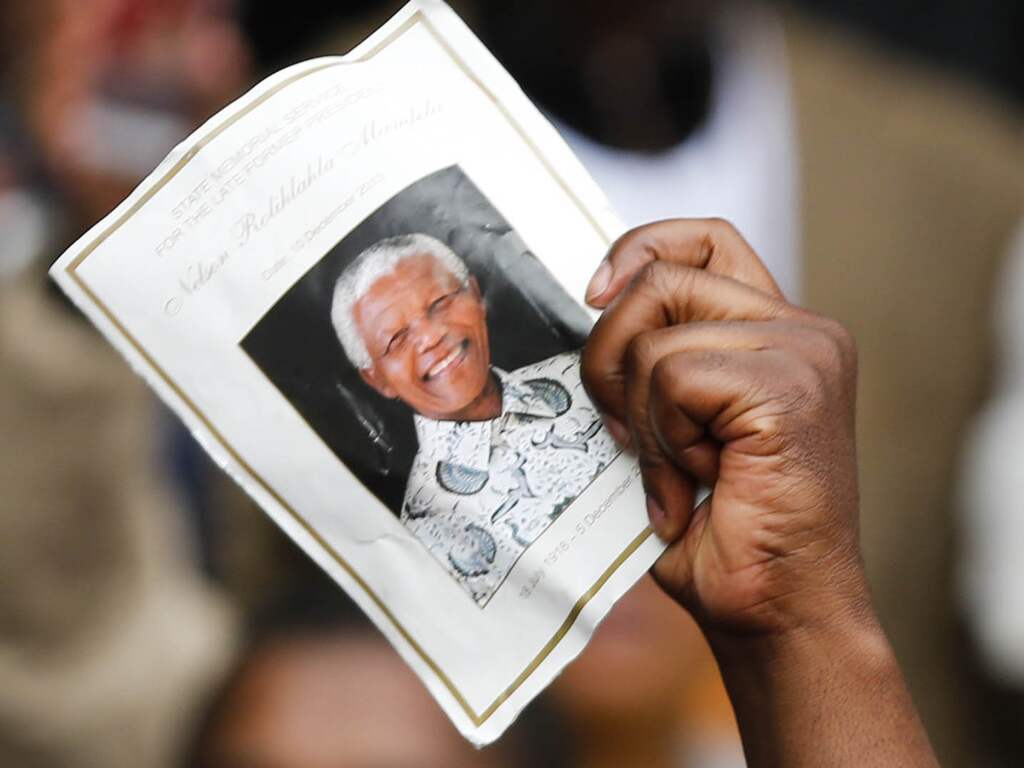 STATE MEMORIAL SERVICE
FOR THE LATE FORMER PRESIDENT
Nelson Rolihlahla Mandela
Date: 10 December 2013
18 July 1918 - 5 December